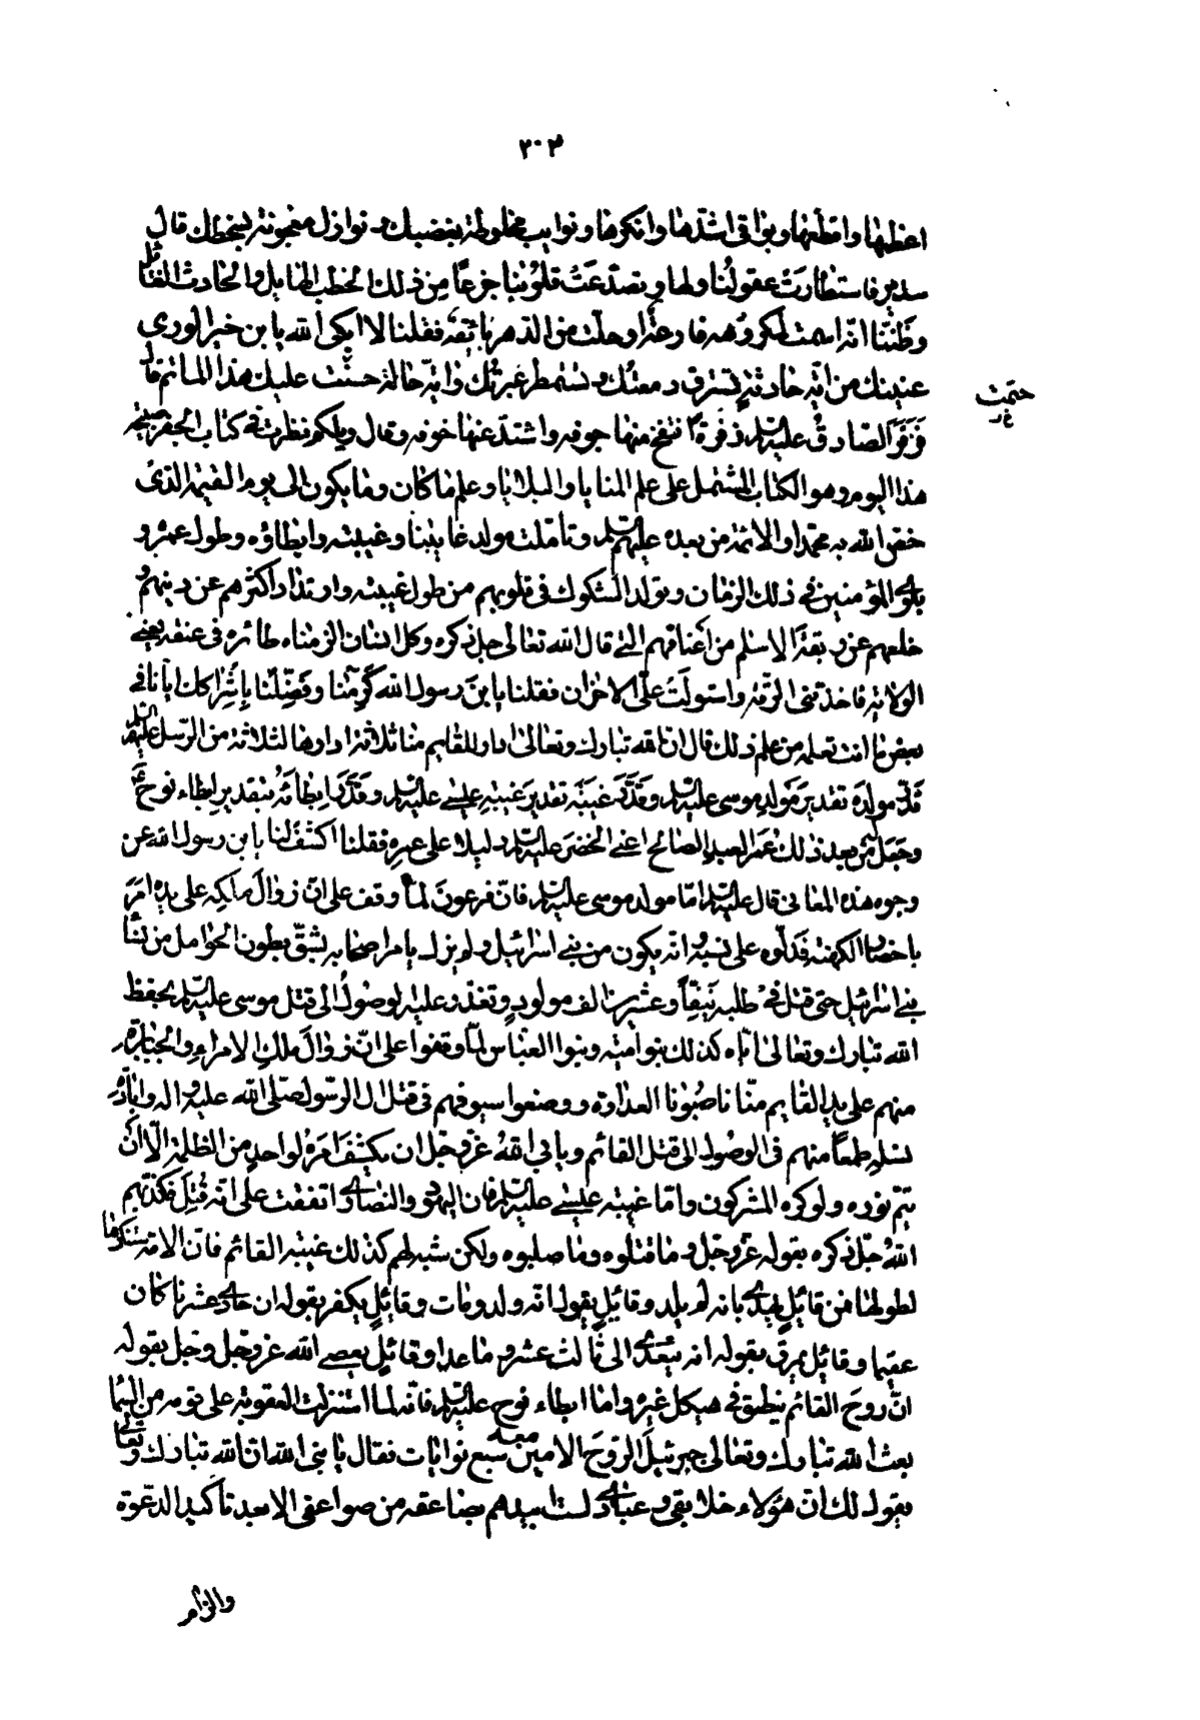 ٢٠٣
اعظمها وافظعها وبواقى اشدّها وانكرها ونوايب مخلوطة بغضبك ونوازل معجونة بسخطك قال
سدير فاستطارت عقولنا ولها وتصدّعت قلوبنا جزعًا من ذلك الخطب الهايل والحادث الغائل
وظننا انّه اسمت لمكروهه قارعة او حلّت من الدهر بائقة فقلنا لا ابكى الله يا بن خير الورى
عينيك من ايّة حادثةٍ تسترق دمعتك وتستمطر عبرتك وايّة حالة حتّمت عليك هذا الماتم قال
حتمت
فزفر الصّادق عليه السلم زفرة انتفخ منها جوفه واشتدّ عنها خوفه وقال ويلكم نظرت فى كتاب الجفر صبيحة
هذا اليوم وهو الكتاب المشتمل على علم المنايا والبلايا وعلم ما كان وما يكون الى يوم القيمة الذى
خصّ الله به محمّدا والائمة من بعده عليهم السلم وتاملت مولد غايبنا وغيبته وابطاؤه وطول عمره و
بلوى المؤمنين فى ذلك الزمان وتولد الشكوك فى قلوبهم من طول غيبته وارتداد اكثرهم عن دينهم و
خلعهم عن ربقة الاسلم من اعناقهم التى قال الله تعالى جل ذكره وكل انسان الزمناه طائره فى عنقه يعنى
الولاية فاخذتنى الرّقة واستولت علىّ الاحزان فقلنا يا بن رسول الله كرّمنا وفضّلنا بإشراكك ايّانا فى
بعض ما انت تعلمه من علم ذلك قال ان الله تبارك وتعالى ادار للقايم منا ثلاثة ادارها لثلاثة من الرّسل عليهم السلم
قدّر مولده تقدير مولد موسى عليه السلم وقدّر غيبته تقدير غيبة عيسى عليه السلم وقدّر ابطائه بتقدير ابطاء نوح ع
وجعل من بعد ذلك عمر العبد الصّالح اعنى الخضر عليه السلم دليلا على عمره فقلنا اكشف لنا يا بن رسول الله عن
وجوه هذه المعانى قال عليه السلم امّا مولد موسى عليه السلم فانّ فرعون لمّا وقف على انّ زوال ملكه على يده امر
باحضار الكهنة فدلّوه على نسبه وانّه يكون من بنى اسرائيل ولم يزل يامر اصحابه بشقّ بطون الحوامل من نساء
بنى اسرائيل حتى قتل فى طلبه نيّفًا وعشرين الف مولود وتعذّر عليه الوصول الى قتل موسى عليه السلم بحفظ
الله تبارك وتعالى ايّاه كذلك بنو اميّة وبنوا العبّاس لمّا وقفوا على انّ زوال ملك الامراء والجبابرة
منهم على يد القايم منّا ناصبونا العداوة ووضعوا سيوفهم فى قتل ال الرّسول صلّى الله عليه واله وابادة
نسله طمعًا منهم فى الوصول الى قتل القائم ويابى الله عزّ وجلّ ان يكشف امره لواحد من الظلمة الّا ان
يتمّ نوره ولو كره المشركون وامّا غيبة عيسى عليه السلم فان اليهود والنصارى اتفقت على انه قُتِل فكذبهم
الله جلّ ذكره بقوله عزّ وجل وما قتلوه وما صلبوه ولكن شبه لهم كذلك غيبة القائم فانّ الامّة ستنكرها
لطولها فمن قائلٍ يهذى بانه لم يلد وقائلٍ يقول انّه ولد ومات وقائلٍ يكفر بقوله ان حادى عشرنا كان
عقيما وقائل يمرق بقوله انه يتعدّى الى ثالث عشر وما عدا وقائلٍ يعصى الله عزّ وجل بقوله
انّ روح القائم ينطق فى هيكل غيره واما ابطاء نوح عليه السلم فانّه لما استنزلت العقوبة على قومه من السّماء
بعث الله تبارك وتعالى جبرئيل الرّوح الامين معه سبع نوايات فقال يا نبى الله ان الله تبارك وتعالى
يقول لك انّ هؤلاء خلايقى وعبادى لست ابيدهم بصاعقة من صواعقى الا بعد تاكيد الدعوة
والزام